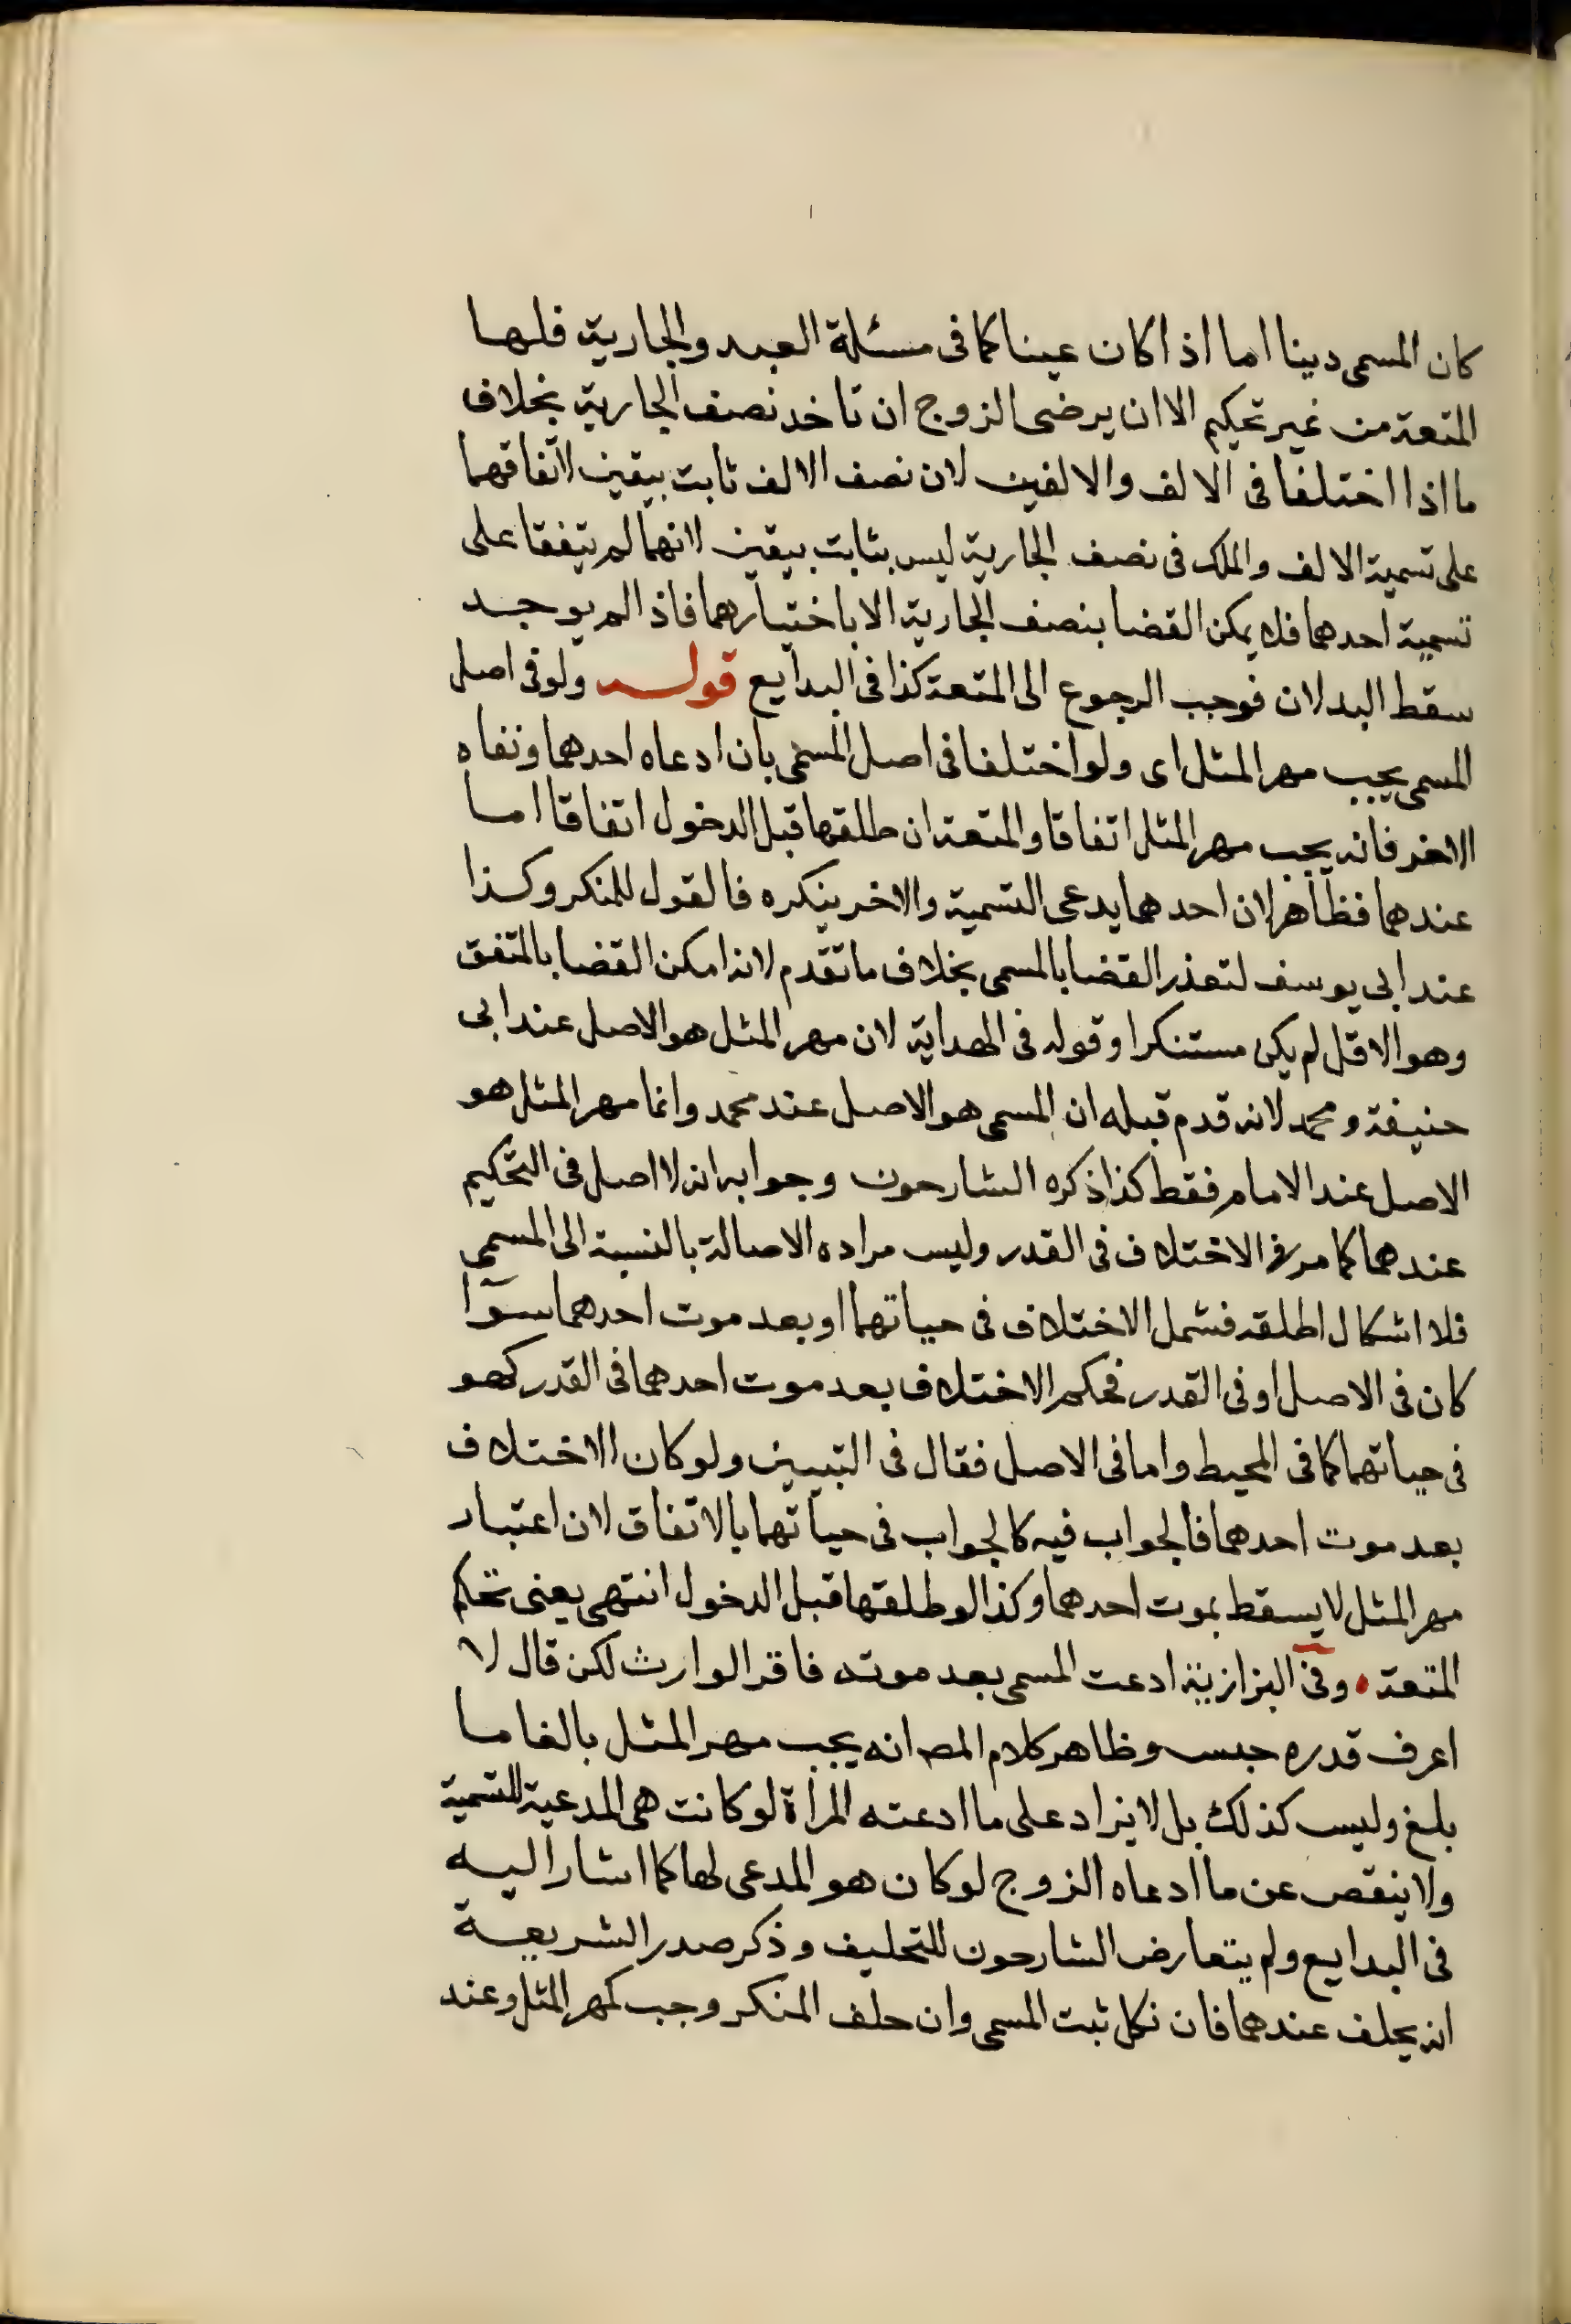 كان المسمى دينا اما اذا كان عينا كما فى مسئلة العبد والجارية فلها
المتعة من غير تحكيم الا ان يرضى الزوج ان تاخد نصف الجارية بخلاف
ما اذا اختلفا فى الالف والالفين لان نصف الالف ثابت بيقين لاتفاقهما
على تسمية الالف والملك فى نصف الجارية ليس بثابت بيقين لانهما لم يتفقا على
تسمية احدهما فلا يمكن القضا بنصف الجارية الا باختيارهما فاذا لم يوجد
سقط البدلان فوجب الرجوع الى المتعة كذا فى البدايع قوله ولو فى اصل
المسمى يجب مهر المثل اى ولو اختلفا فى اصل المسمى بان ادعاه احدهما ونفاه
الاخر فانه يجب مهر المثل اتفاقا والمتعة ان طلقها قبل الدخول اتفاقا اما
عندهما فظاهر لان احدهما يدعى التسمية والاخر ينكره فالقول للمنكر وكذا
عند ابى يوسف لتعذر القضا بالمسمى بخلاف ما تقدم لانه امكن القضا بالمتفق
وهو الاقل لم يكن مستنكرا وقوله فى الهداية لان مهر المثل هو الاصل عند ابى
حنيفة ومحمد لانه قدم قبله ان المسمى هو الاصل عند محمد وانما مهر المثل هو
الاصل عند الامام فقط كذا ذكره الشارحون وجوابه انه لا اصل فى التحكيم
عندهما كما مر فى الاختلاف فى القدر وليس مراده الاصالة بالنسبة الى المسمى
فلا اشكال اطلقه فشمل الاختلاف فى حياتهما او بعد موت احدهما سوآ
كان فى الاصل او فى القدر فحكم الاختلاف بعد موت احدهما فى القدر كهو
فى حياتهما كما فى المحيط واما فى الاصل فقال فى التبيين ولو كان الاختلاف
بعد موت احدهما فالجواب فيه كالجواب فى حياتهما بالاتفاق لان اعتبار
مهر المثل لا يسقط بموت احدهما وكذا لو طلقها قبل الدخول انتهى يعنى تحكم
المتعة وفى البزازية ادعت المسمى بعد موته فاقر الوارث لكن قال لا
اعرف قدره حبس وظاهر كلام المص انه يجب مهر المثل بالغا ما
بلغ وليس كذلك بل لا يزاد على ما ادعته المرأة لو كانت هى المدعية للتسمية
ولا ينقص عن ما ادعاه الزوج لو كان هو المدعى لها كما اشار اليه
فى البدايع ولم يتعارض الشارحون للتحليف وذكر صدر الشريعة
انه يحلف عندهما فان نكل ثبت المسمى وان حلف المنكر وجب كمهر المثل وعند